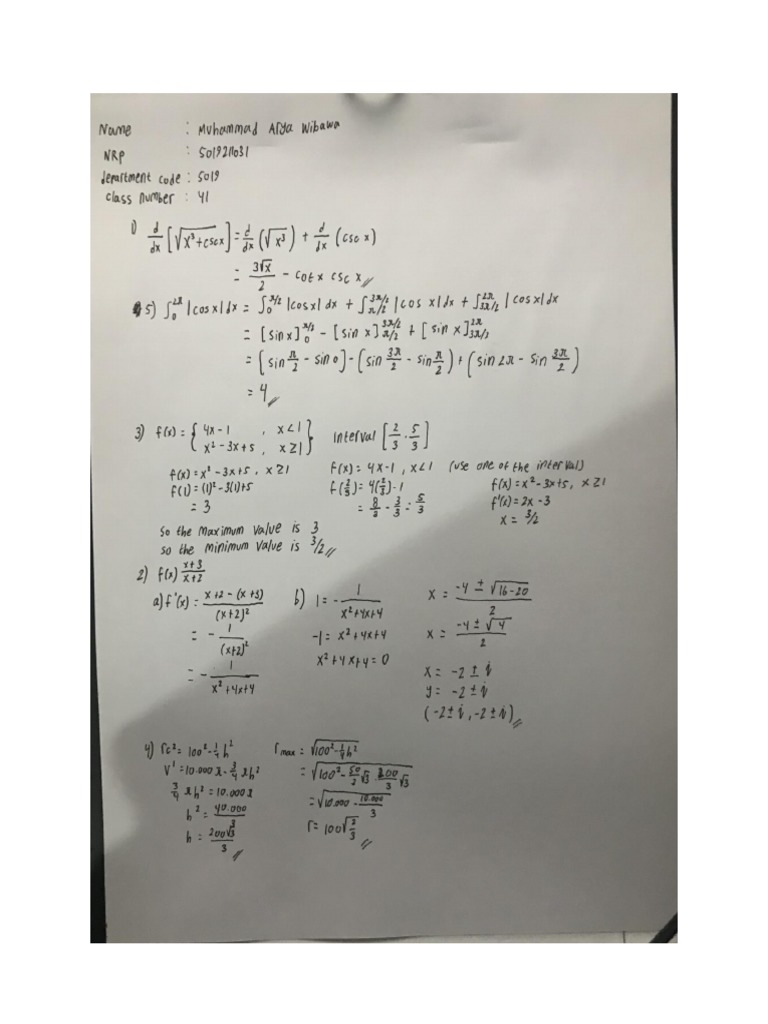 Name : Muhammad Arya Wibawa
NRP : 5019211031
department code : 5019
class number : 41
1) d/dx [√x³+cscx] = d/dx (√x³) + d/dx (csc x)
= 3√x/2 - cot x csc x //
5) ∫₀^2π |cosx|dx = ∫₀^π/2 |cosx|dx + ∫π/2^3π/2 |cos x|dx + ∫3π/2^2π |cosx|dx
= [sinx]₀^π/2 - [sin x]π/2^3π/2 + [sin x]3π/2^2π
= (sin π/2 - sin 0) - (sin 3π/2 - sin π/2) + (sin 2π - sin 3π/2)
= 4 //
3) f(x) = { 4x-1 , x<1
x²-3x+5, x≥1 } interval [2/3 . 5/3]
f(x) = x² - 3x+5, x≥1
f(1) = (1)² - 3(1)+5
= 3
f(x) = 4x-1, x<1 (use one of the interval)
f(2/3) = 4(2/3)-1
= 8/3 - 3/3 = 5/3
f(x) = x²-3x+5, x≥1
f'(x) = 2x - 3
x = 3/2
so the maximum value is 3
so the minimum value is 3/2 //
2) f(x) x+3/x+2
a) f'(x) = x+2-(x+3)/(x+2)²
= - 1/(x+2)²
= - 1/x²+4x+4
b) 1 = - 1/x²+4x+4
-1 = x²+4x+4
x²+4x+4=0
x = -4 ± √16-20/2
x = -4±√4/2
x = -2 ± i
y = -2 ± i
(-2±i, -2±i) //
4) rc² = 100² - 1/4 h²
V' = 10.000π - 3/4 πh²
3/4 πh² = 10.000π
h² = 40.000/3
h = 200√3/3 //
rmax = √100²-1/4h²
= √100²-50/2√3 . 200/3√3
= √10.000 - 10.000/3
r = 100√2/3 //